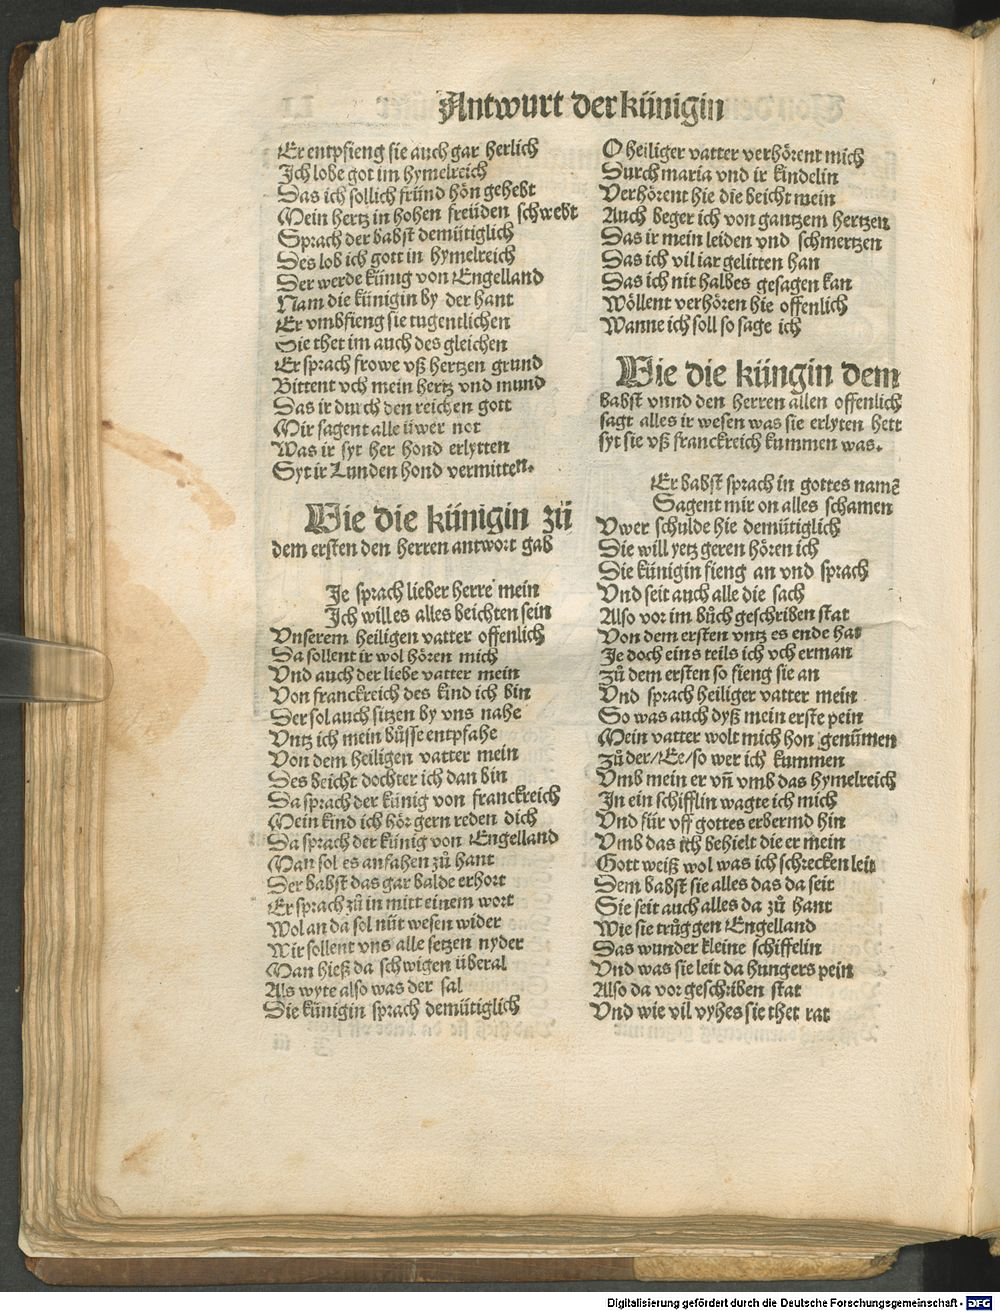 Antwurt der künigin
Er entpfieng sie auch gar herlich
Ich lobe got im hymelreich
Das ich sollich fründ hon gehebt
Mein hertz in hohen freüden schwebt
Sprach der babst demütiglich
Des lob ich gott in hymelreich
Der werde künig von Engelland
Nam die künigin by der hant
Er vmbfieng sie tugentlichen
Sie thet im auch des gleichen
Er sprach frowe vß hertzen grund
Bittent vch mein hertz vnd mund
Das ir durch den reichen gott
Mir sagent alle üwer not
Was ir syt her hond erlytten
Syt ir Lunden hond vermitten.
Wie die künigin zů
dem ersten den herren antwort gab
Je sprach lieber herre mein
Ich will es alles beichten sein
Vnserem heiligen vatter offenlich
Da sollent ir wol hören mich
Vnd auch der liebe vatter mein
Von franckreich des kind ich bin
Der sol auch sitzen by vns nahe
Vntz ich mein büsse entpfahe
Von dem heiligen vatter mein
Des beicht dochter ich dan bin
Da sprach der künig von franckreich
Mein kind ich hör gern reden dich
Da sprach der künig von Engelland
Man sol es anfahen zů hant
Der babst das gar balde erhort
Er sprach zů in mitt einem wort
Wol an da sol nüt wesen wider
Wir sollent vns alle setzen nyder
Man hieß da schwigen überal
Als wyte also was der sal
Die künigin sprach demütiglich
O heiliger vatter verhörent mich
Durch maria vnd ir kindelin
Verhörent hie die beicht mein
Auch beger ich von gantzem hertzen
Das ir mein leiden vnd schmertzen
Das ich vil iar gelitten han
Das ich nit halbes gesagen kan
Wöllent verhören hie offenlich
Wanne ich soll so sage ich
Wie die küngin dem
babst vnnd den herren allen offenlich
sagt alles ir wesen was sie erlyten hett
syt sie vß franckreich kummen was.
Er babst sprach in gottes namẽ
Sagent mir on alles schamen
Vwer schulde hie demütiglich
Die will yetz geren hören ich
Die künigin fieng an vnd sprach
Vnd seit auch alle die sach
Also vor im bůch geschriben stat
Von dem ersten vntz es ende hat
Je doch eins teils ich vch erman
Zů dem ersten so fieng sie an
Vnd sprach heiliger vatter mein
So was auch dyß mein erste pein
Mein vatter wolt mich hon genům̃en
Zů der/Ee/so wer ich kummen
Vmb mein er vñ vmb das hymelreich
In ein schifflin wagte ich mich
Vnd für vff gottes erbermd hin
Vmb das ich behielt die er mein
Gott weiß wol was ich schrecken leit
Dem babst sie alles das da seit
Sie seit auch alles da zů hant
Wie sie trůg gen Engelland
Das wunder kleine schiffelin
Vnd was sie leit da hungers pein
Also da vor geschriben stat
Vnd wie vil vyhes sie thet rat
Digitalisierung gefördert durch die Deutsche Forschungsgemeinschaft - DFG